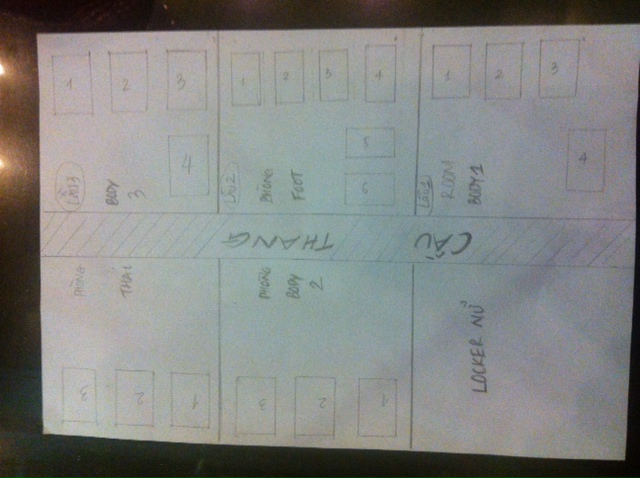 3
2
1
PHÒNG
THAI
LẦU3
BODY
3
1
2
3
4
3
2
1
PHÒNG
BODY
2
CẦU THANG
LẦU2
PHÒNG
FOOT
1
2
3
4
5
6
LOCKER NỮ
LẦU1
ROOM
BODY 1
1
2
3
4